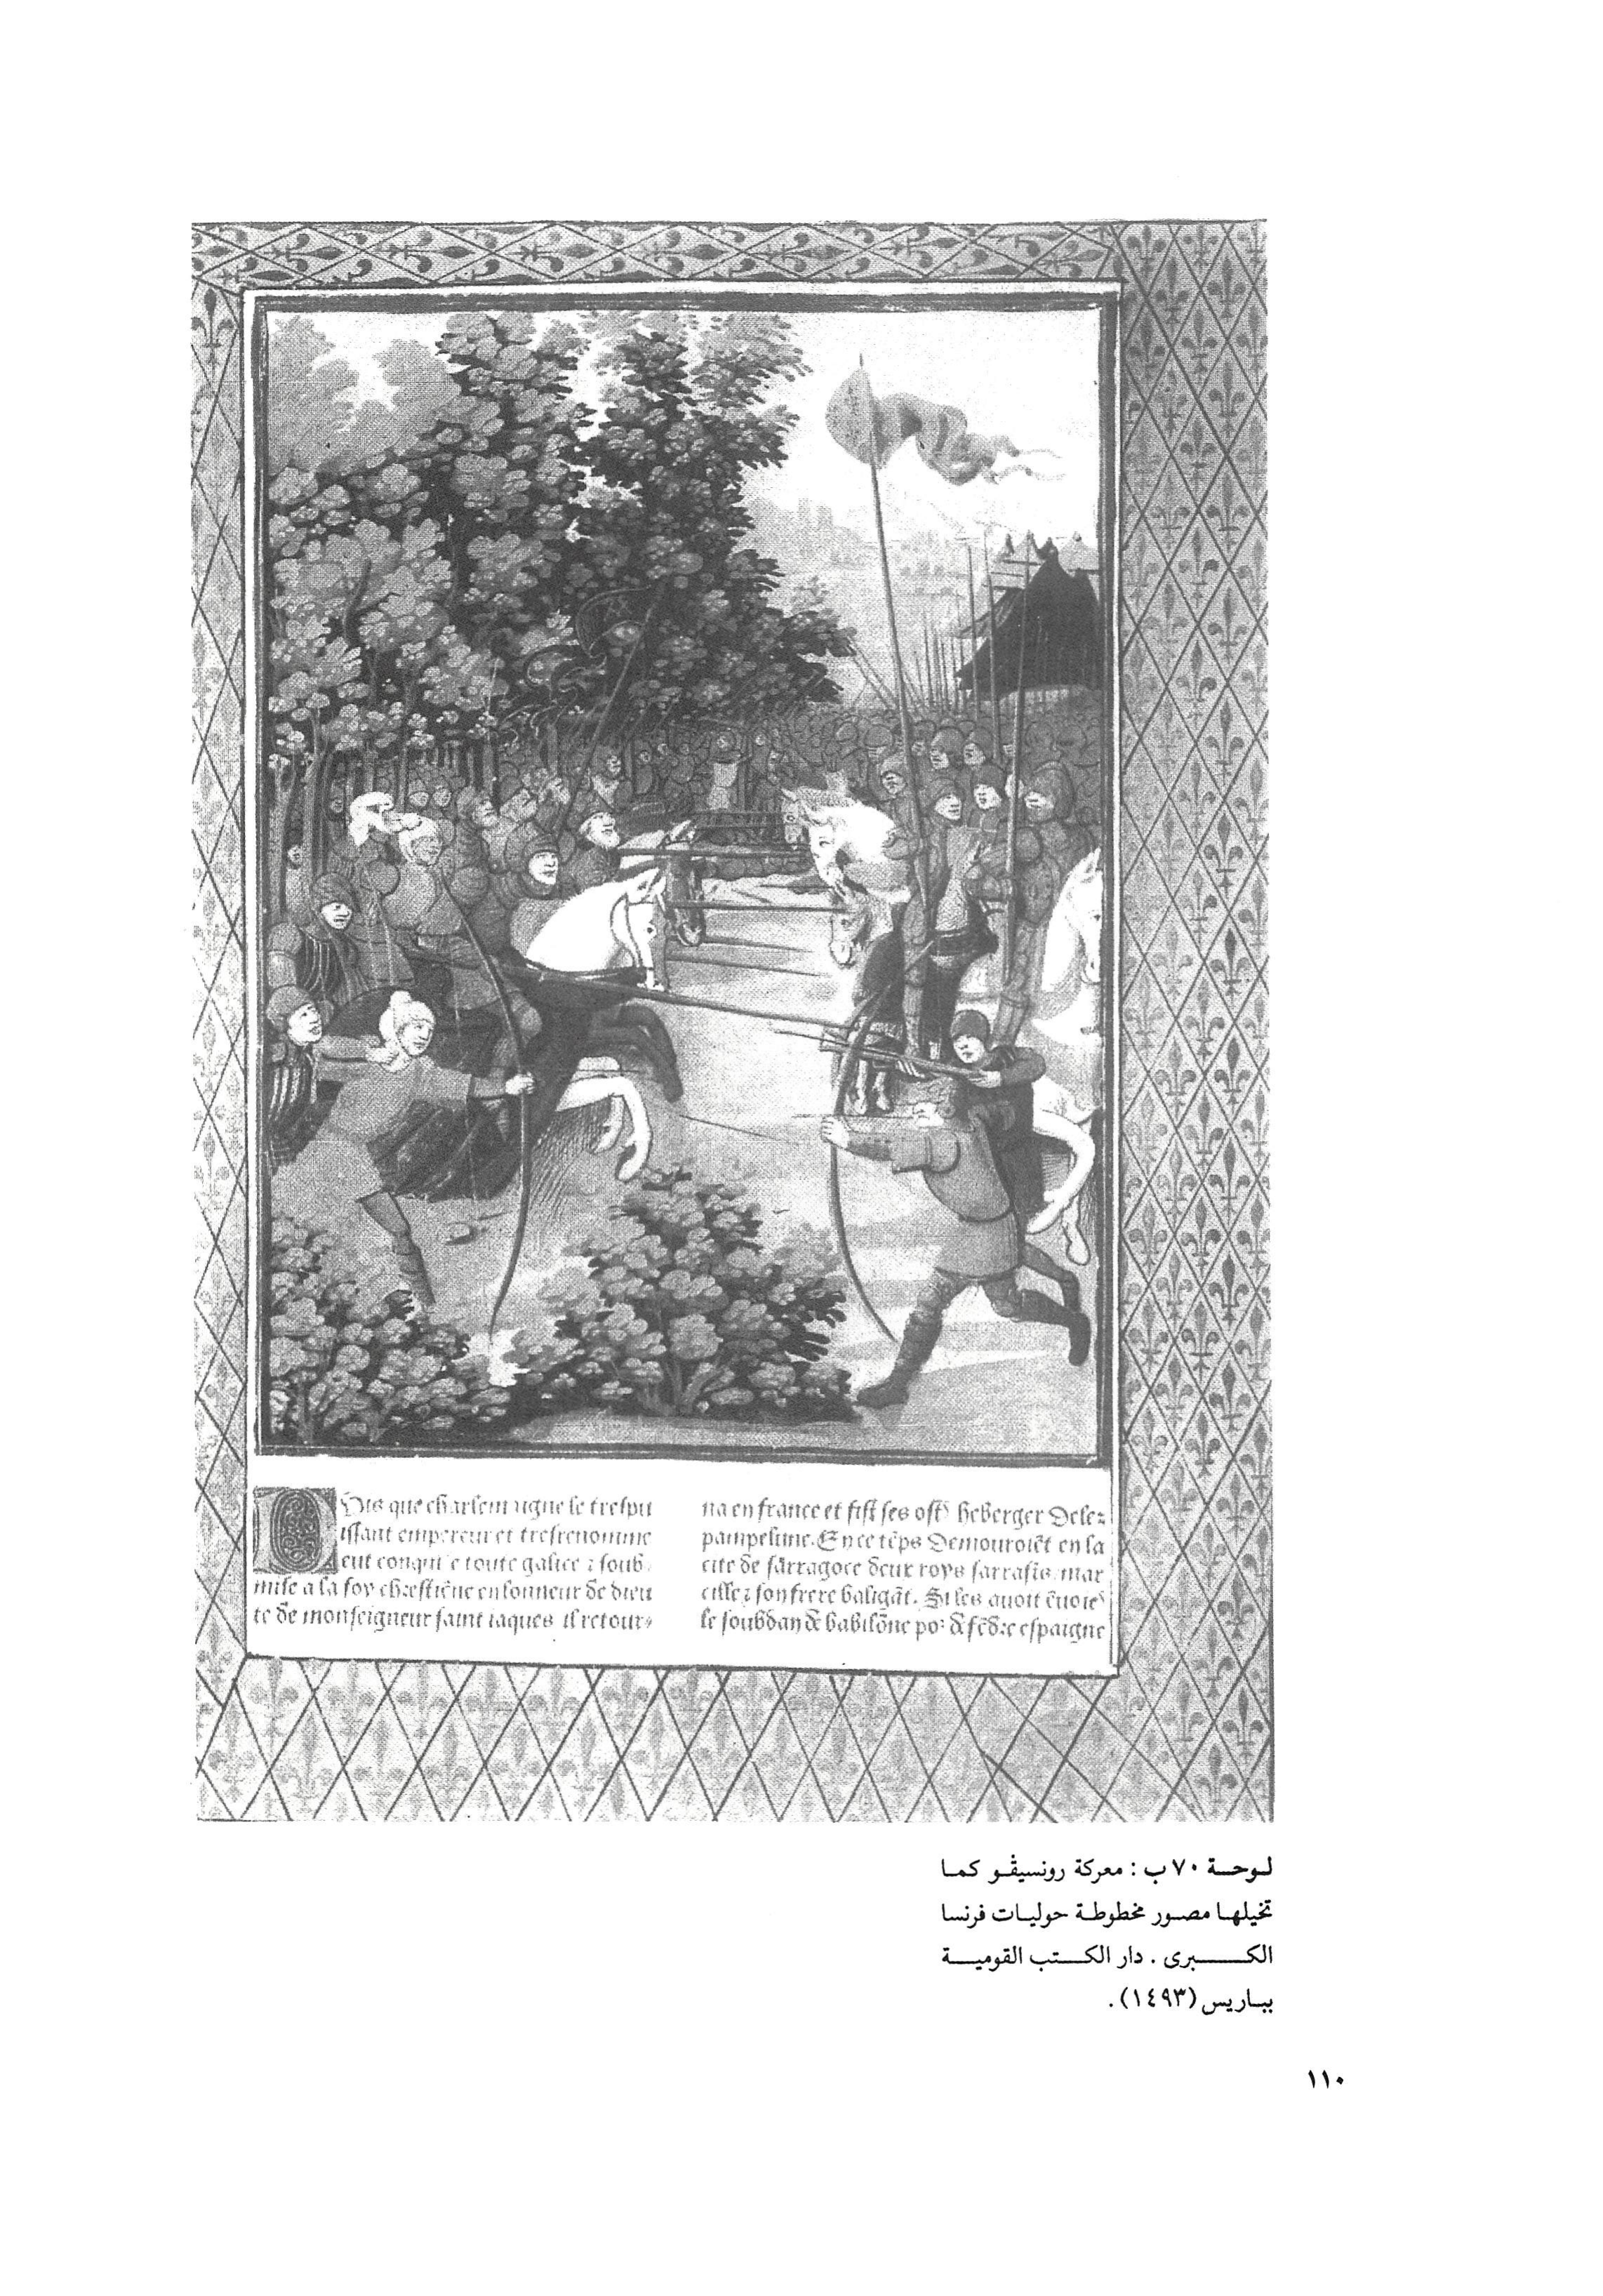 Puis que charlemaigne le trespu
issant empereur et tresrenomme
eut conquise toute galice ⁊ soub
mise a la foy chrestiēne en lonneur de dieu
te de monseigneur saint iaques il retour⸗
na en france et fist ses ost⁹ heberger deles
pampelune. En ce tēps demouroiēt en la
cite de sarragoce deux roys sarrasīs mar
cille ⁊ son frere baligāt. Si les auoit ēuoie
le soubdan de babilōne por defēdre espaigne
لوحة ٧٠ ب : معركة رونسيڤو كما
تخيلها مصور مخطوطة حوليات فرنسا
الكبرى . دار الكتب القومية
بباريس (١٤٩٣) .
١١٠